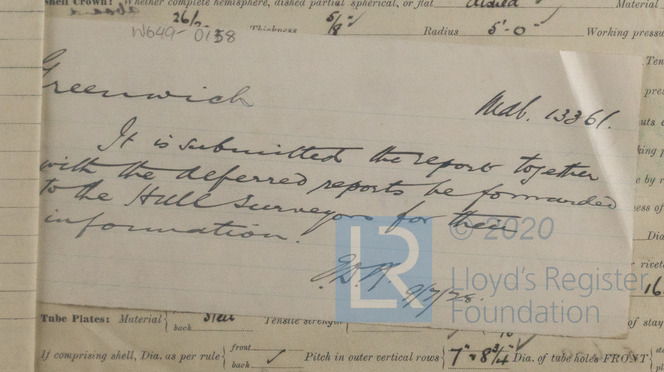 Shell Crown: Whether complete hemisphere, dished partial spherical, or flat dished Material
26/
W649-0158 Thickness 5/8" Radius 5'-0" Working pressu
Greenwich
Mdb. 13361.
It is submitted the report together
with the deferred reports be forwarded
to the Hull Surveyors for their
information.
9/7/28.
© 2020
LR
Lloyd's Register
Foundation
16
Tube Plates: Material { Steel back Tensile strength of stay
If comprising shell, Dia. as per rule { front back ✓ Pitch in outer vertical rows 7" × 8 3/4" Dia. of tube holes FRONT